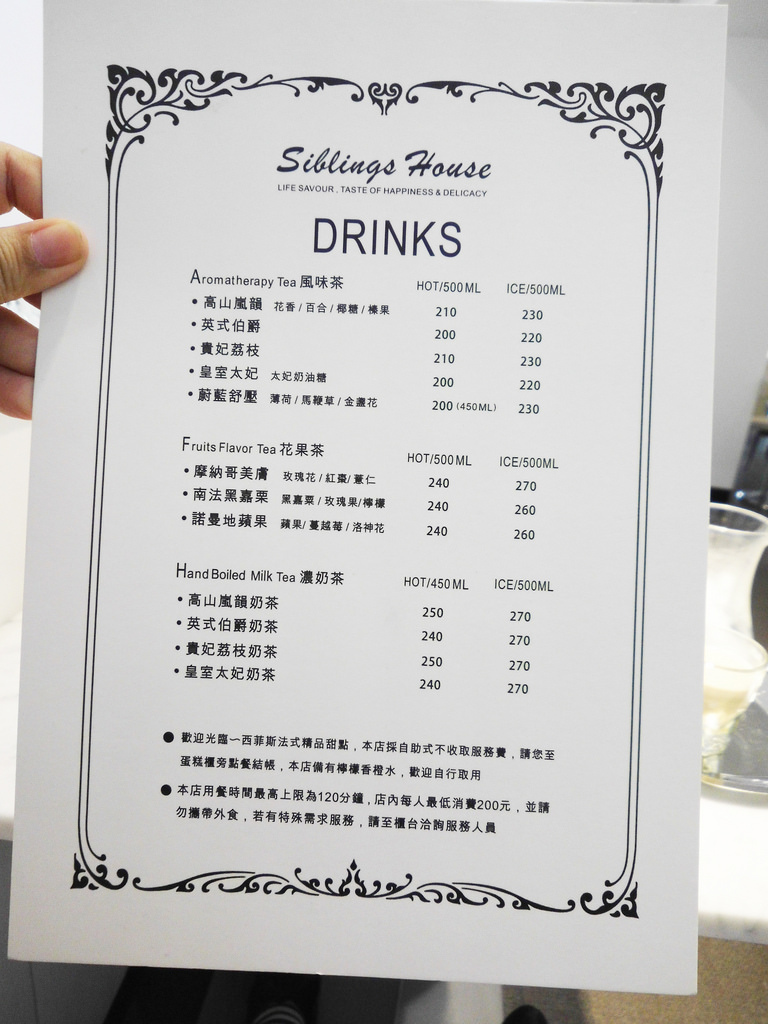 Siblings House
LIFE SAVOUR , TASTE OF HAPPINESS & DELICACY
DRINKS
Aromatherapy Tea 風味茶 HOT/500 ML ICE/500ML
• 高山嵐韻 花香 / 百合 / 椰糖 / 榛果 210 230
• 英式伯爵 200 220
• 貴妃荔枝 210 230
• 皇室太妃 太妃奶油糖 200 220
• 蔚藍舒壓 薄荷 / 馬鞭草 / 金盞花 200 (450ML) 230
Fruits Flavor Tea 花果茶 HOT/500 ML ICE/500ML
• 摩納哥美膚 玫瑰花 / 紅棗/ 薏仁 240 270
• 南法黑嘉栗 黑嘉粟 / 玫瑰果/檸檬 240 260
• 諾曼地蘋果 蘋果/ 蔓越莓 / 洛神花 240 260
Hand Boiled Milk Tea 濃奶茶 HOT/450 ML ICE/500ML
• 高山嵐韻奶茶 250 270
• 英式伯爵奶茶 240 270
• 貴妃荔枝奶茶 250 270
• 皇室太妃奶茶 240 270
● 歡迎光臨~西菲斯法式精品甜點，本店採自助式不收取服務費，請您至
蛋糕櫃旁點餐結帳，本店備有檸檬香橙水，歡迎自行取用
● 本店用餐時間最高上限為120分鐘，店內每人最低消費200元，並請
勿攜帶外食，若有特殊需求服務，請至櫃台洽詢服務人員